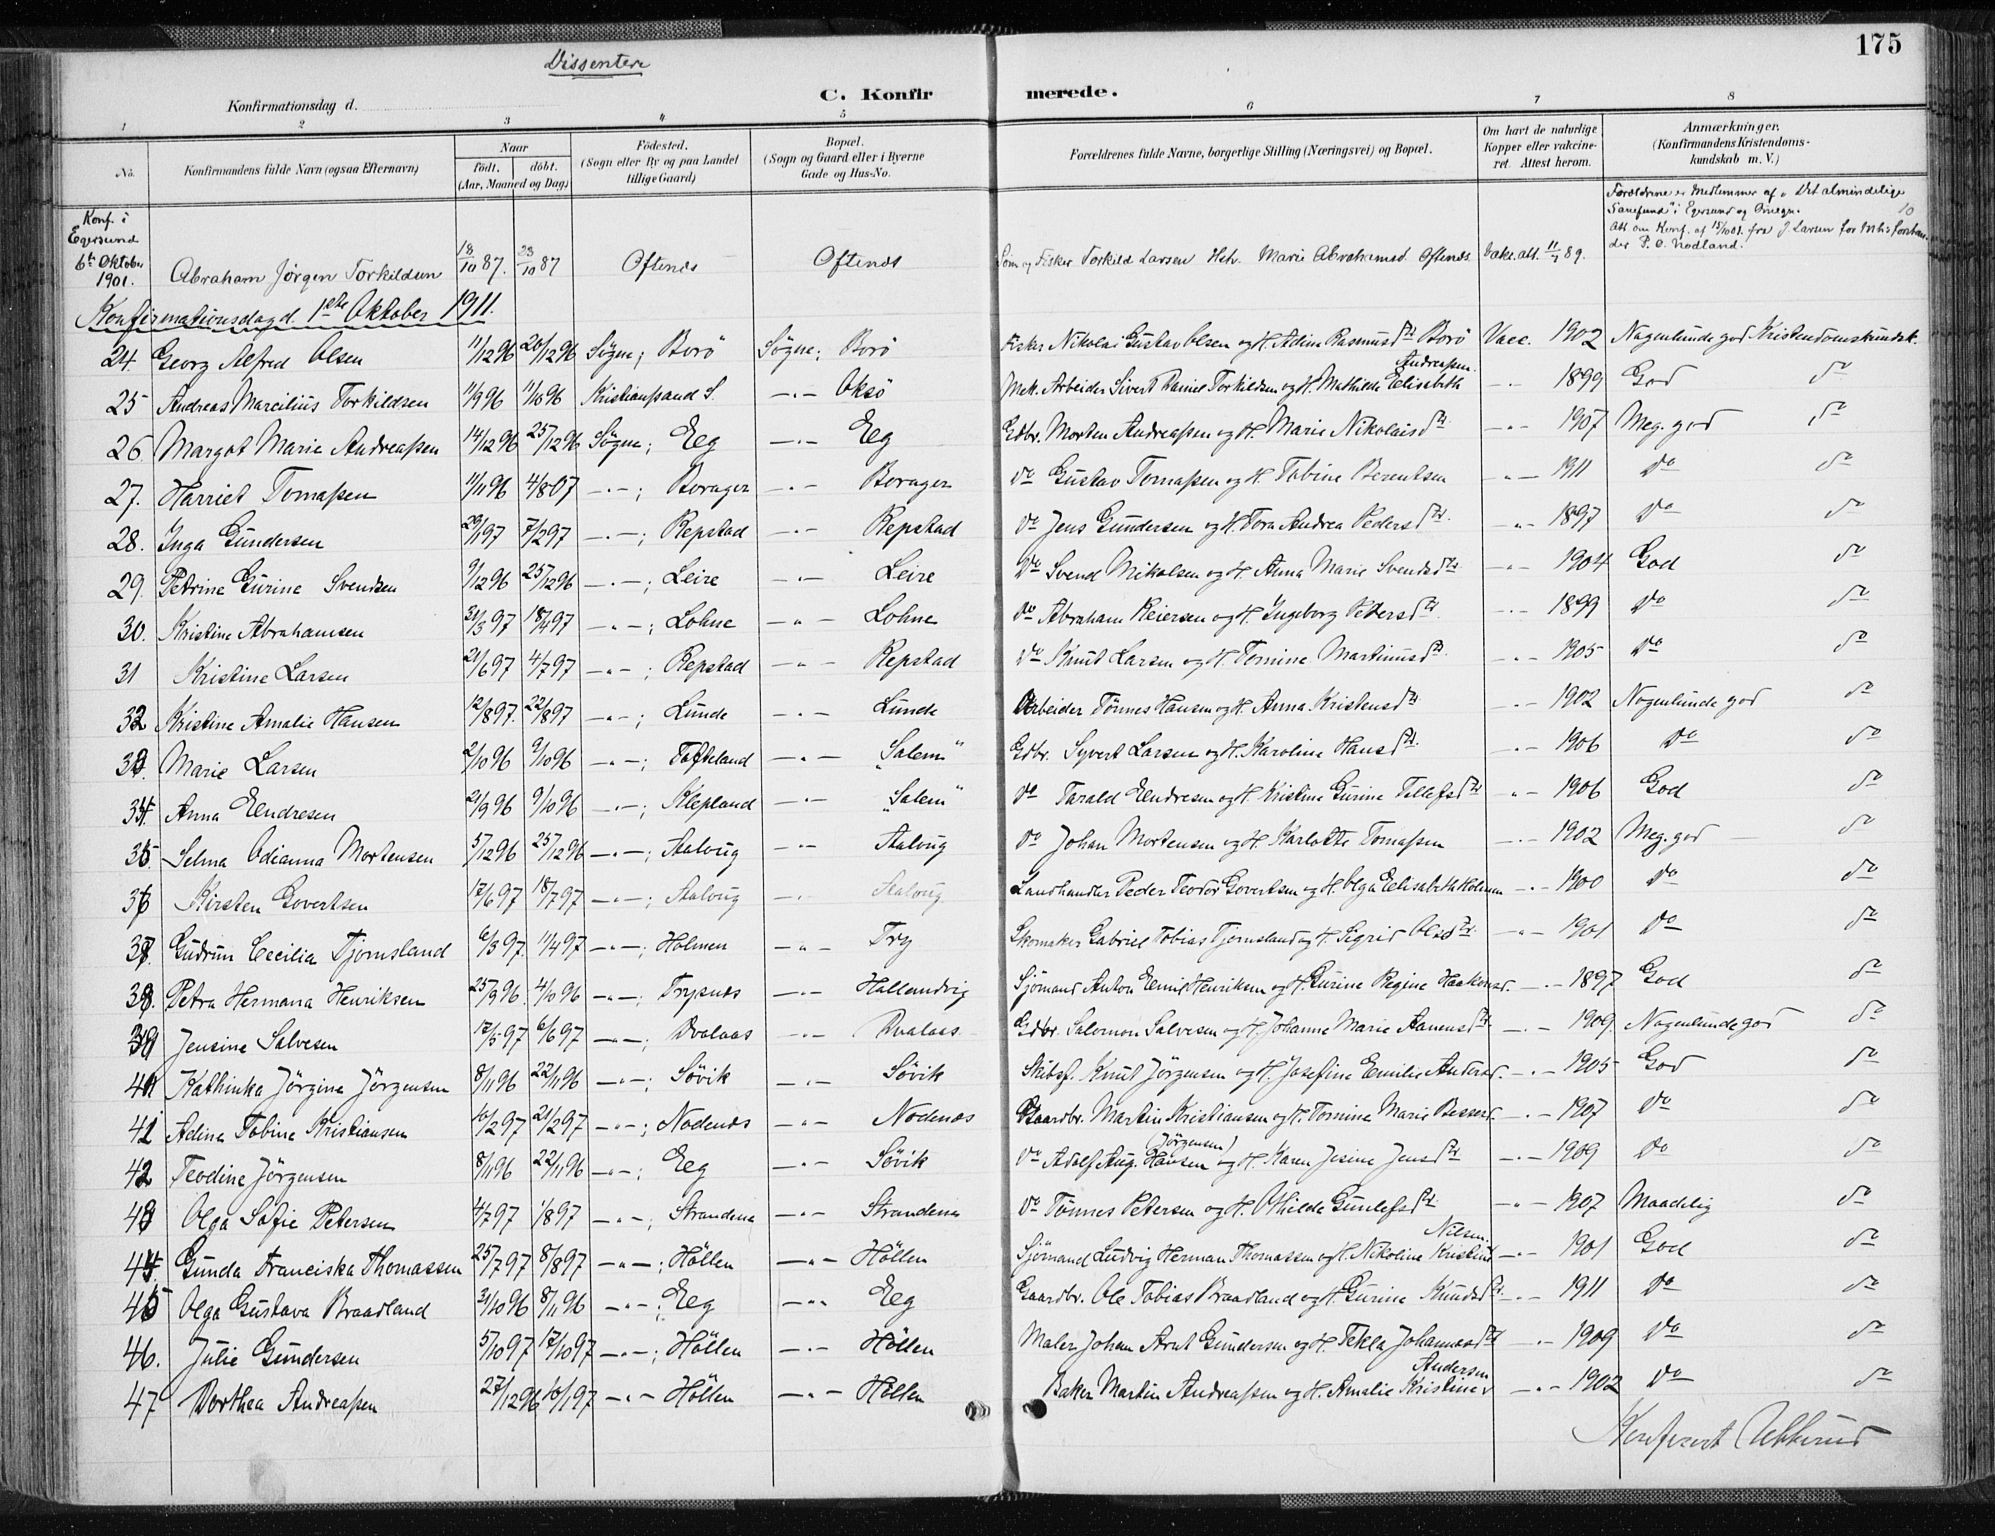 175
Dissentere
Konfirmationsdag d.
C. Konfirmerede.
1 2 3 4 5 6 7 8
No.
Konfirmandens fulde Navn (ogsaa Efternavn)
Naar
født. døbt.
(Aar, Maaned og Dag)
Fødested.
(Sogn eller By og paa Landet
tillige Gaard.)
Bopæl.
(Sogn og Gaard eller i Byerne
Gade og Hus-No.
Forældrenes fulde Navne, borgerlige Stilling (Næringsvei) og Bopæl.
Om havt de naturlige
Kopper eller vakcine-
ret. Attest herom.
Anmærkninger.
(Konfirmandens Kristendoms-
kundskab m. V.)
Forældrene er Medlemmer af "Det almindelige
Samfund" i Egersund og Omegn.
Att om Konf. af 15/10 01. fra J Larsen for Mhs. forstan-
der P. O. Nodland.
10
Konf. i
Egersund
6te Oktober
1901.
Abraham Jørgen Torkildsen 18/10 87. 23/10 87 Oftenæs Oftenæs Søm og Fisker Torkild Larsen Hstr. Marie Abrahamsd Oftenæs Vakc. att. 11/7 89.
Konfirmationsdag d. 1ste Oktober 1911.
24. Georg Alfred Olsen 11/12 96 20/12 96 Søgne; Borö Søgne; Borö Fisker Nikolai Gustav Olsen og H. Adine Rasmusdtr Borö Vacc. 1902 Nogenlunde god Kristendomskundsk.
25 Andreas Marcilius Torkildsen 11/9 96 11/10 96 Kristianssand S. -"- Oksö Mek. Arbeider Sivert Daniel Torkildsen og H. Mathilde Elisabeth Andreassen -"- 1899 God do
26. Margot Marie Andreassen 14/12 96 25/12 96 Søgne; Eeg -"- Eeg Gdbr. Morten Andreassen og H. Marie Nikolaisdtr -"- 1907 Meg. god do
27. Harriet Tomassen 11/11 96 4/8 07 -"-; Borøgen -"- Borøgen do Gustav Tomassen og H. Tobine Berentsen -"- 1911 do do
28. Inga Gundersen 29/1 97 7/2 97 -"-; Repstad -"- Repstad do Jens Gundersen og H. Tora Andrea Pedersdtr. -"- 1897 do do
29. Petrine Gurine Svendsen 9/12 96 25/12 96 -"-; Leire -"- Leire do Svend Mikalsen og H. Anna Marie Svendsdtr -"- 1904 God do
30. Kristine Abrahamsen 31/3 97 18/4 97 -"-; Lohne -"- Lohne do Abraham Reiersen og H. Ingeborg Pettersdtr -"- 1899 do do
31 Kristine Larsen 21/6 97 4/7 97 -"-; Repstad -"- Repstad do Knut Larsen og H. Tomine Martinusdtr. -"- 1905 do do
32 Kristine Amalie Hansen 12/8 97. 22/8 97 -"-; Lunde -"- Lunde Arbeider Tönnes Hansen og H. Anna Kristensdtr -"- 1902 Nogenlunde god do
33. Marie Larsen 2/10 96 9/10 96 -"-; Tofteland -"- "Salem" Gdbr. Syvert Larsen og H. Karoline Hansdtr. -"- 1906 do do
34. Anna Eendresen 21/9 96 9/10 96 -"-; Klepland -"- "Salem" do Tarald Eendresen og H. Kristine Gurine Tellefsdtr -"- 1906 God do
35 Selma Odianna Mortensen 5/12 96 25/12 96 -"-; Aalvug -"- Aalvug do Johan Mortensen og H. Karlotte Tomassen -"- 1902 Meg. god do
36 Kirsten Govertsen 17/6 97 18/7 97 -"-; Aalvug -"- Aalvug Landhandler Peder Teodor Govertsen og H. Olga Elisabeth Holmen -"- 1900 do do
37. Gudrun Cecilia Tjomsland 6/3 97. 11/4 97 -"-; Holmen -"- Try Skomaker Gabriel Tobias Tjomsland og H. Sigrid Olsdtr. -"- 1901 do do
38. Petra Hermana Henriksen 25/9 96. 4/10 96 -"-; Trysnes -"- Hallandvig Sjömand Anton Emil Henriksen og H. Gurine Regine Haakonsd. -"- 1897 God do
39 Jensine Salvesen 17/5 97 6/6 97 -"-; Dvalaas -"- Dvalaas. Gdbr. Salomon Salvesen og H. Johanne Marie Aanensdtr. -"- 1909. Nogenlunde god do
40 Kathinka Jörgine Jörgensen 8/11 96 22/11 96 -"-; Sövik -"- Sövik Skibsf. Knut Jörgensen og H. Josefine Emilie Andersd. -"- 1905 God do
41 Adina Tobine Kristiansen 10/2 97 21/2 97 -"-; Nodenæs -"- Nodenæs Gaardbr. Martin Kristiansen og H. Tomine Marie Bessesd. -"- 1907 do do
42 Teodine Jörgensen 8/11 96 22/11 96 -"- Eeg -"- Sövik do Adolf Aug. Hansen (Jörgensen) og H. Karen Jesine Jensdtr -"- 1909 do do
43 Olga Sofie Petersen 4/7 97 1/8 97 -"-; Strandena -"- Strandena do Tönnes Petersen og H. Othilde Gunlefsdtr. -"- 1907 Maadelig do
44. Gunda Franciska Thomassen 25/7 97 8/8 97 -"-; Höllen -"- Höllen Sjömand Ludvig Herman Thomassen og H. Nikoline Kristine Nilsen. -"- 1901 God do
45 Olga Gustava Braadland 31/10 96 8/11 96 -"-; Eeg -"- Eeg Gaardbr. Ole Tobias Braadland og H. Gurine Knudsdtr. -"- 1911 do do
46. Julie Gundersen 5/10 97 17/10 97 -"-; Höllen -"- Höllen Maler Johan Arnt Gundersen og H. Tekla Johannesdtr -"- 1909 do do
47 Dorthea Andreassen 27/12 96 10/1 97 -"- Höllen -"- Höllen Baker Martin Andreassen og H. Amalie Kristine Andersen -"- 1902 do do